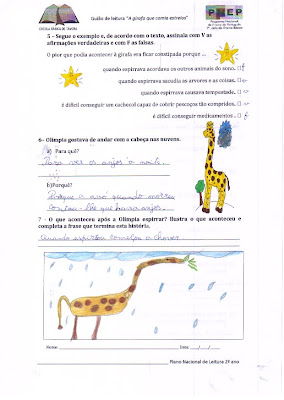 Guião de leitura "A girafa que comia estrelas"
ESCOLA BÁSICA DE TAVEIRO
PNEP
Programa Nacional
de Ensino do Português
1º ciclo do Ensino Básico
5 - Segue o exemplo e, de acordo com o texto, assinala com V as
afirmações verdadeiras e com F as falsas.
O pior que podia acontecer à girafa era ficar constipada porque ...
quando espirrava acordava os outros animais do sono.
quando espirrava sacudia as arvores e as coisas.
quando espirrava causava tempestade.
é difícil conseguir um cachecol capaz de cobrir pescoços tão compridos.
é difícil conseguir medicamentos
6- Olímpia gostava de andar com a cabeça nas nuvens.
a) Para quê?
Para ver os anjos à noite.
b)Porquê?
Porque a avó quando morreu
7 - O que aconteceu após a Olímpia espirrar? Ilustra o que aconteceu e
completa a frase que termina esta história.
Quando espirrou começou a chover
Nome:
Data: __/__/__
Plano Nacional de Leitura 2º ano